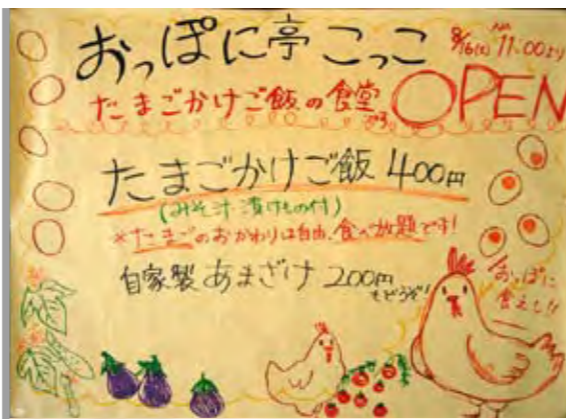 おっぽに亭こっこ
8/16(土) AM 11:00より
たまごかけご飯の食堂です
OPEN
たまごかけご飯 400円
(みそ汁・漬けもの付)
*たまごのおかわりは自由、食べ放題です!
自家製あまざけ 200円
もどうぞ!
おっぽに
食えし!!